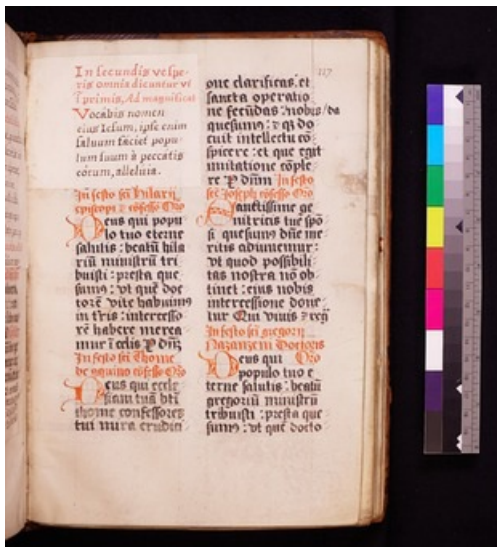 In secundis vespe-
ris omnia dicuntur vt
I primis, Ad magnificat
Vocabis nomen
eius Iesum, ipse enim
saluum faciet popu-
lum suum à peccatis
eórum, alleluia.
In festo sci hilarii
episcopi ⁊ cōfess Oro
Deus qui popu
lo tuo eterne
salutis: beatū hila
riū ministrū tri
buisti: presta que
sumꝰ: vt quē doc
torē vite habuimꝰ
in tris: intercesso
rē habere merea
mur ī celis P dn̄z
In festo sci Thome
de aquino cōfess Oro
Deus qui eccle
siam tuā bt̄i
thome confessores
tui mira eruditi
117
one clarificas, et
sancta operatio
ne fecūdas: nobis/ da
quesumꝰ: ⁊ q̄ do
cuit intellectu cō
spicere: et que egit
imitatione cōple
re P dn̄m In festo
sci Joseph cōfess Oro
Sanctissime ge
nitricis tue spō
si quesumꝰ dn̄e me
ritis adiuuemur:
vt quod possibili
tas nostra nō ob
tinet: eius nobis
intercessione done
tur Qui viuis ⁊ reḡ
In festo sci gregorii
Nazanzeni Doctoris
Deus qui Oro
populo tuo e
terne salutis: beatū
gregoriū ministrū
tribuisti: presta que
sumꝰ: vt quē docto